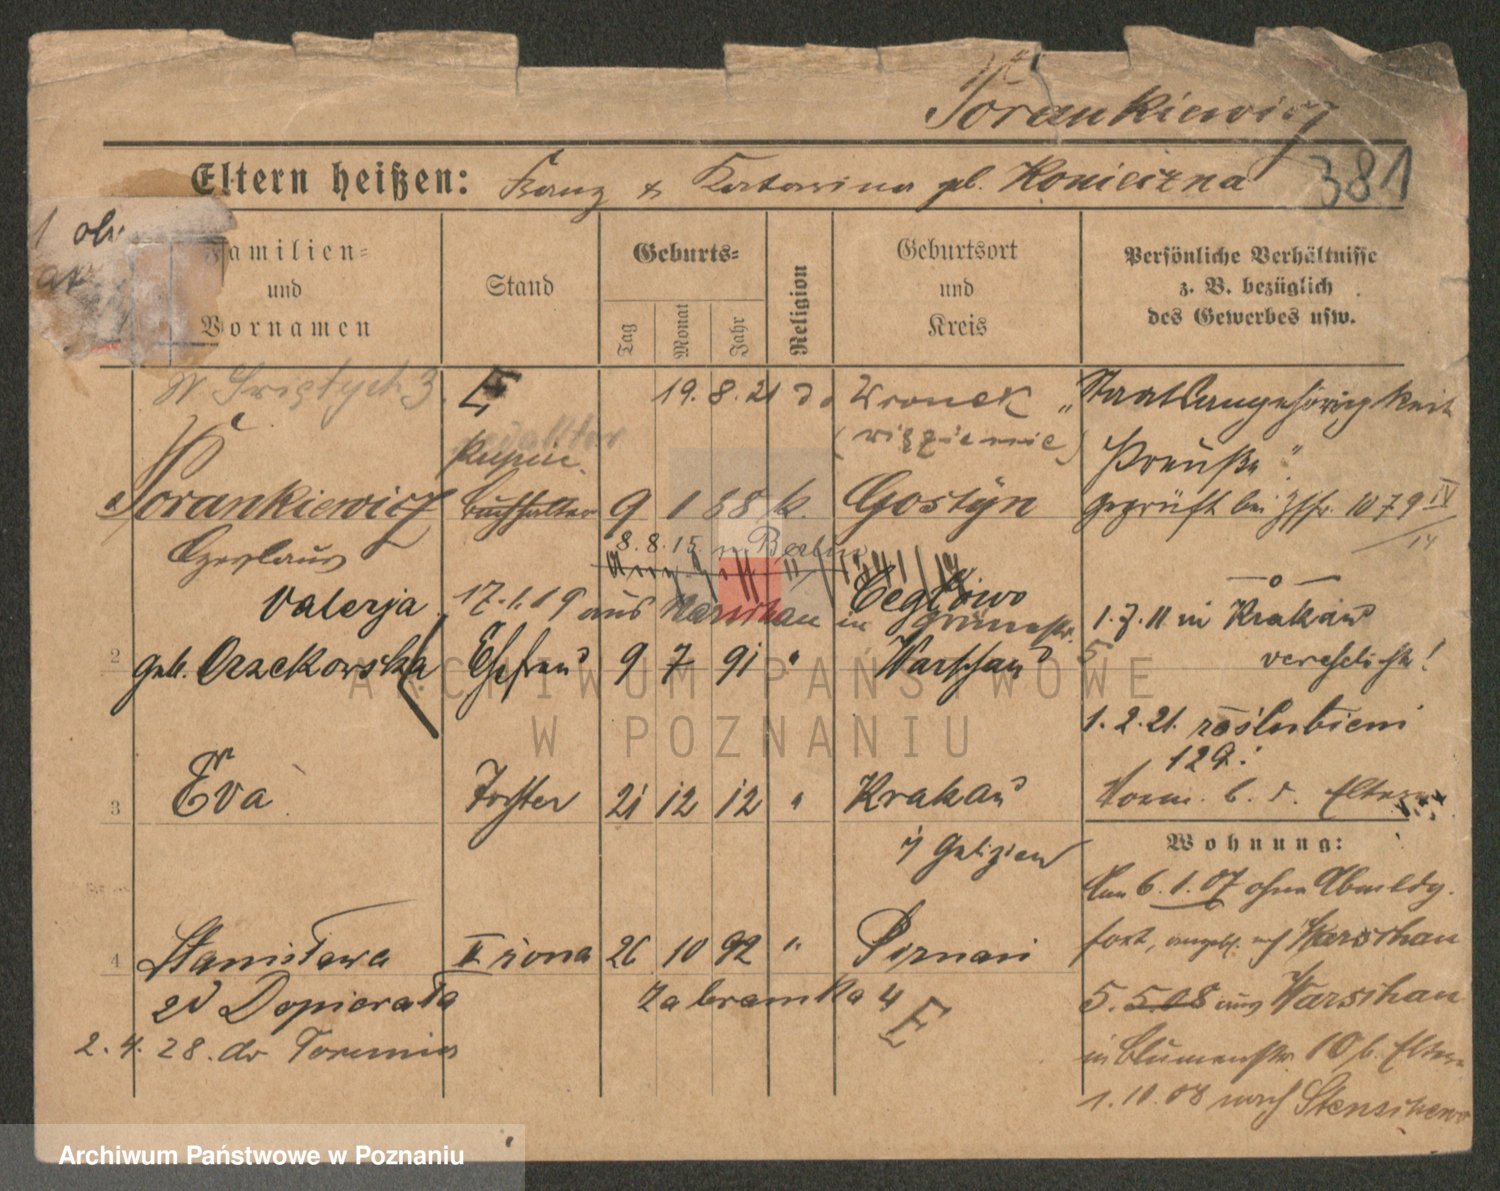 Sorankiewicz
Eltern heißen: Franz & Katarina gb. Konieczna
381
Familien=
und
Vornamen
Stand
Geburts=
Tag
Monat
Jahr
Religion
Geburtsort
und
Kreis
Persönliche Verhältnisse
z. B. bezüglich
des Gewerbes usw.
W. Świętych 3. E 19. 8. 21 do Wronek „Staatsangehörigkeit
Preuße".
Sorankiewicz Buchhalter 9 1 88 k. Gostyn geprüft bei 1079 IV
14
Czeslaus
8. 8. 15. in Berlin
Valerja 17. 1. 19 aus Warschau in
Ceglowo
1. 7. 11 in Krakau
2 geb. Orzekowska Ehefrau 9 7 91 " Warschau
verehelicht!
1. 2. 21. rozślubieni
129.
3 Eva Tochter 21 12 12 " Krakau
b. d. Eltern
i/ Galizien
Wohnung:
6. 1. 07 ohne Abmeldg.
4 Stanisława II żona 26 10 92 " Poznań
fort, angebl. nach Warschau
zd Dopierała Za bramką 4 E
5. 5. 08 aus Warschau
2. 4. 28. do Torunia
in Blumenstr. 10 b. Eltern
1. 10. 08 nach Stenschewo
ARCHIWUM PAŃSTWOWE
W POZNANIU
Archiwum Państwowe w Poznaniu